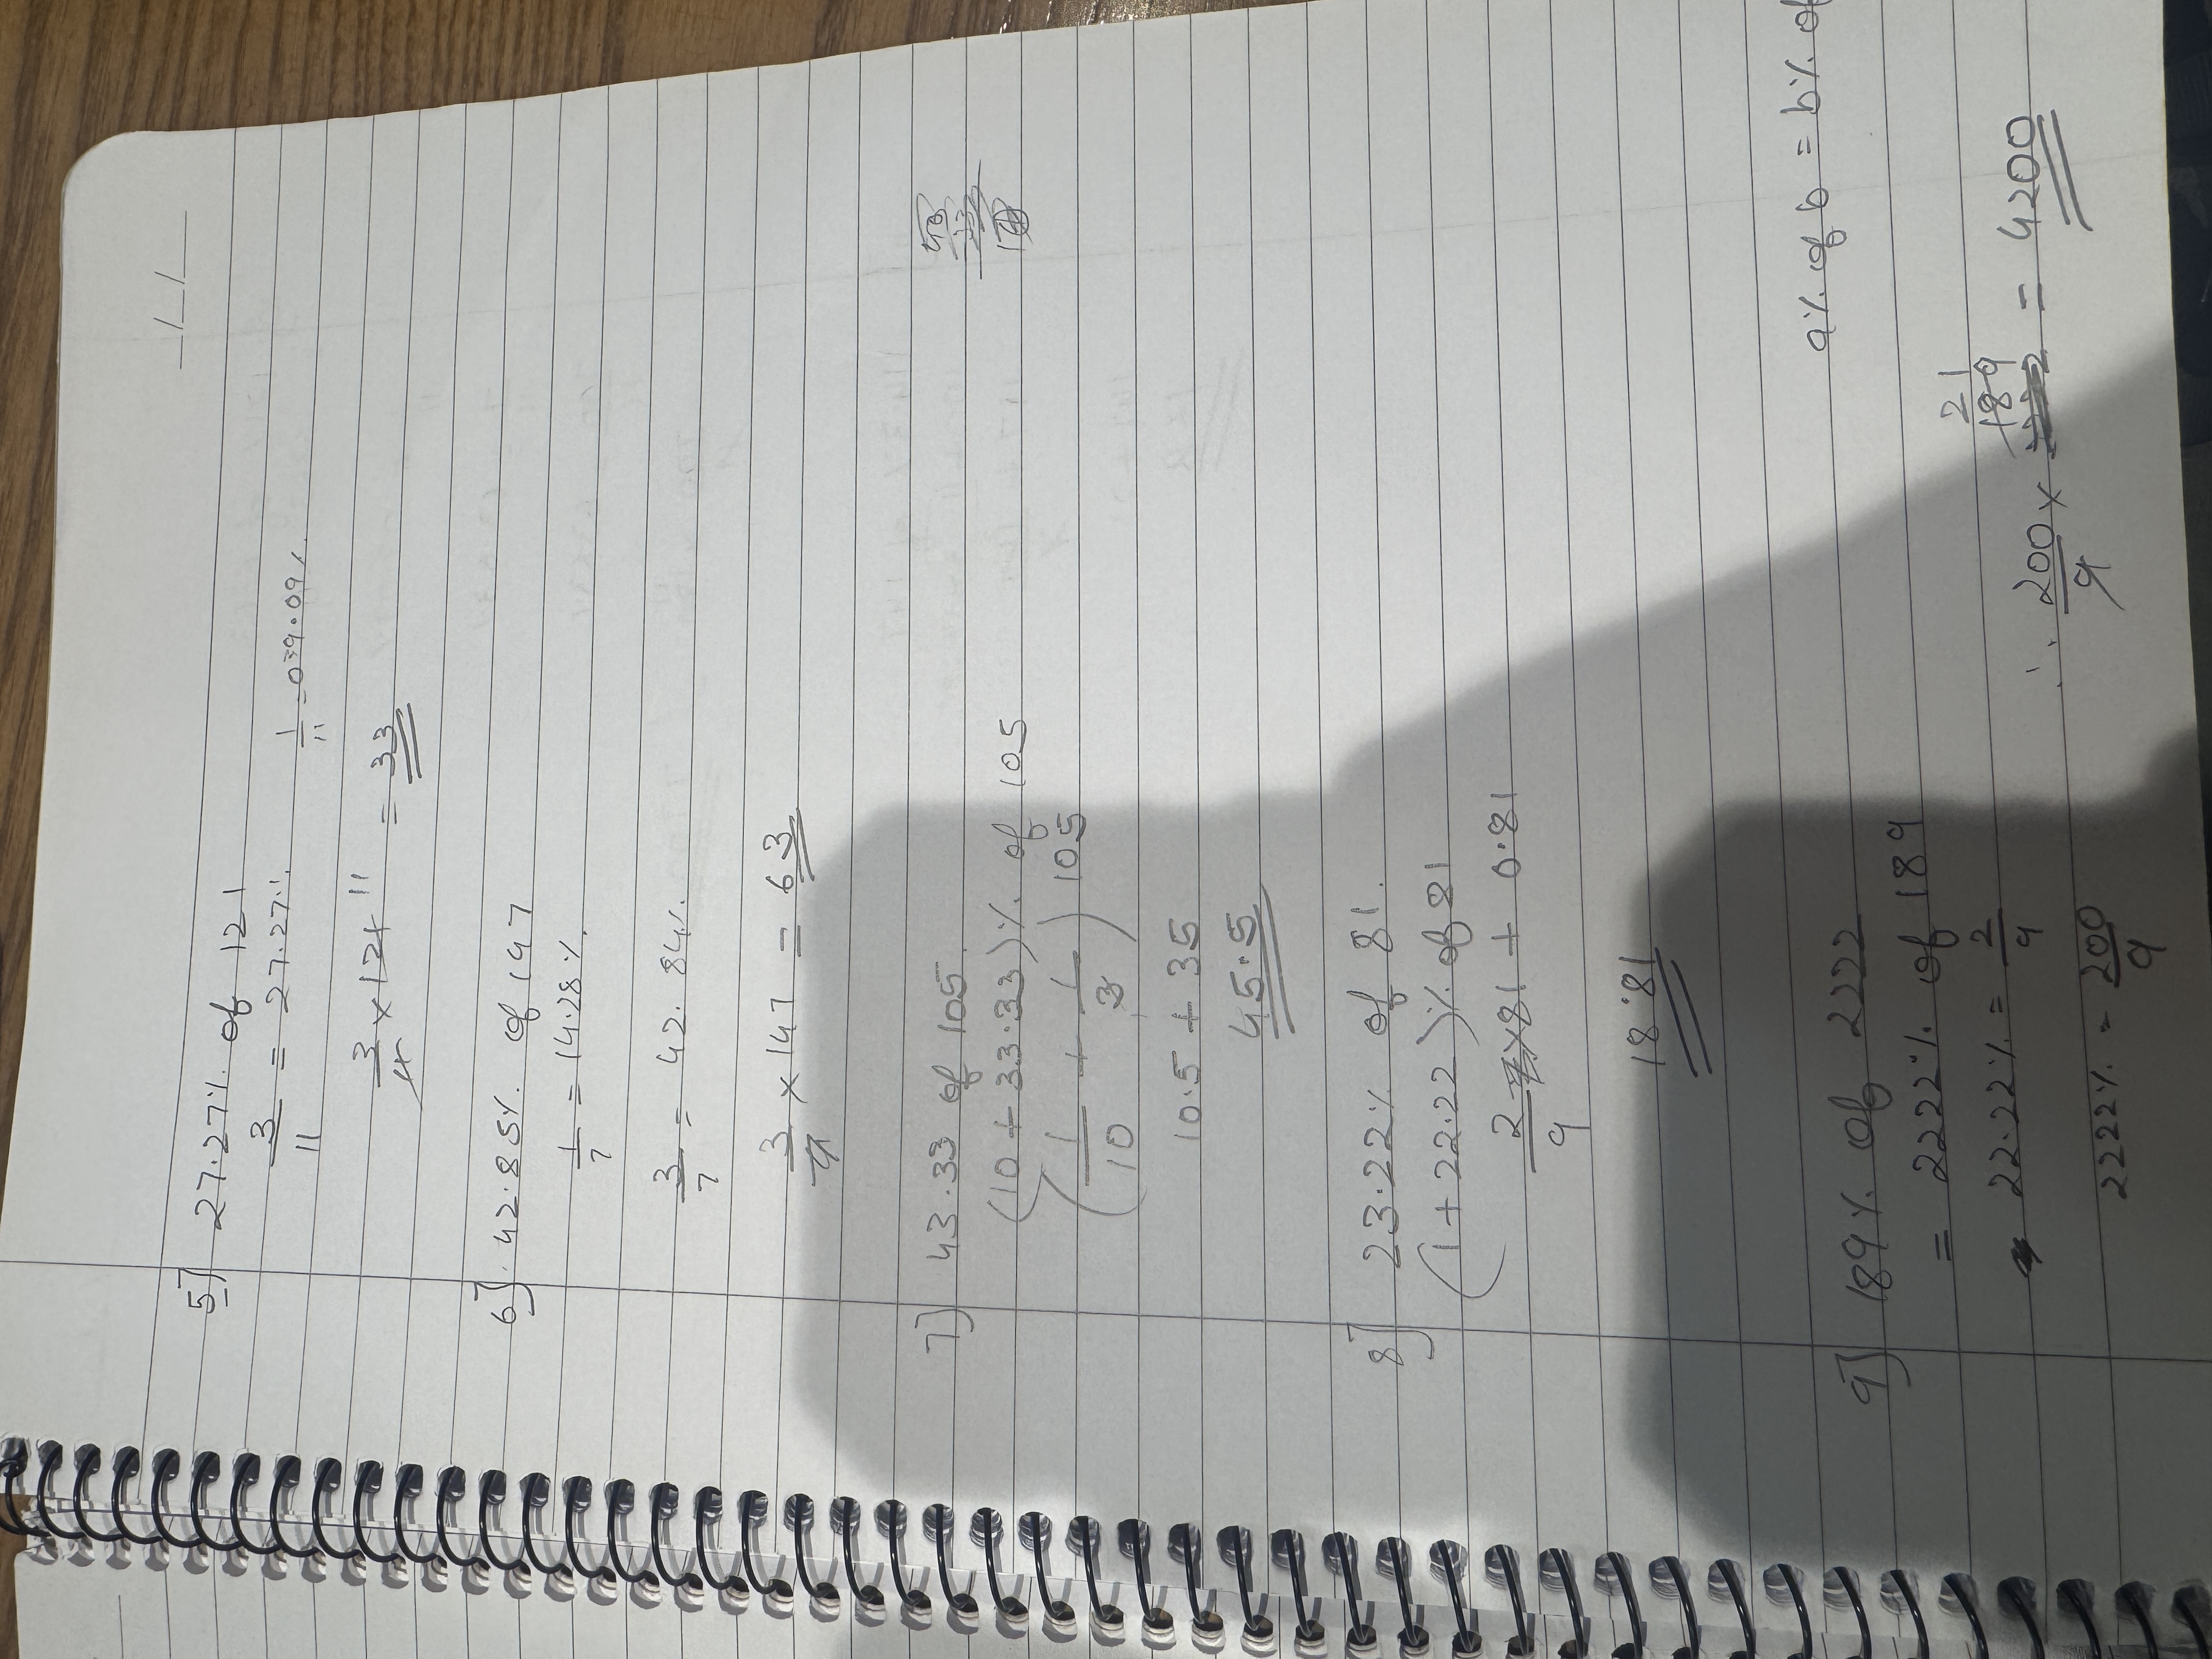 __/__/____
5] 27.27% of 121
3/11 = 27.27% 1/11 = 09.09%
3/11 × 121 11 = 33
6] 42.85% of 147
1/7 = 14.28%
3/7 = 42.84%
3/7 × 147 = 63
7] 43.33 of 105.
(10 + 33.33)% of 105
(1/10 + 1/3) 105
10.5 + 35
45.5
8] 23.22% of 81.
(1 + 22.22)% of 81
2/9 × 81 + 0.81
18.81
a% of b = b% of
9] 189% of 2222
= 2222% of 189
22.22% = 2/9
2222% = 200/9
21
∴ 200/9 × 189 = 4200